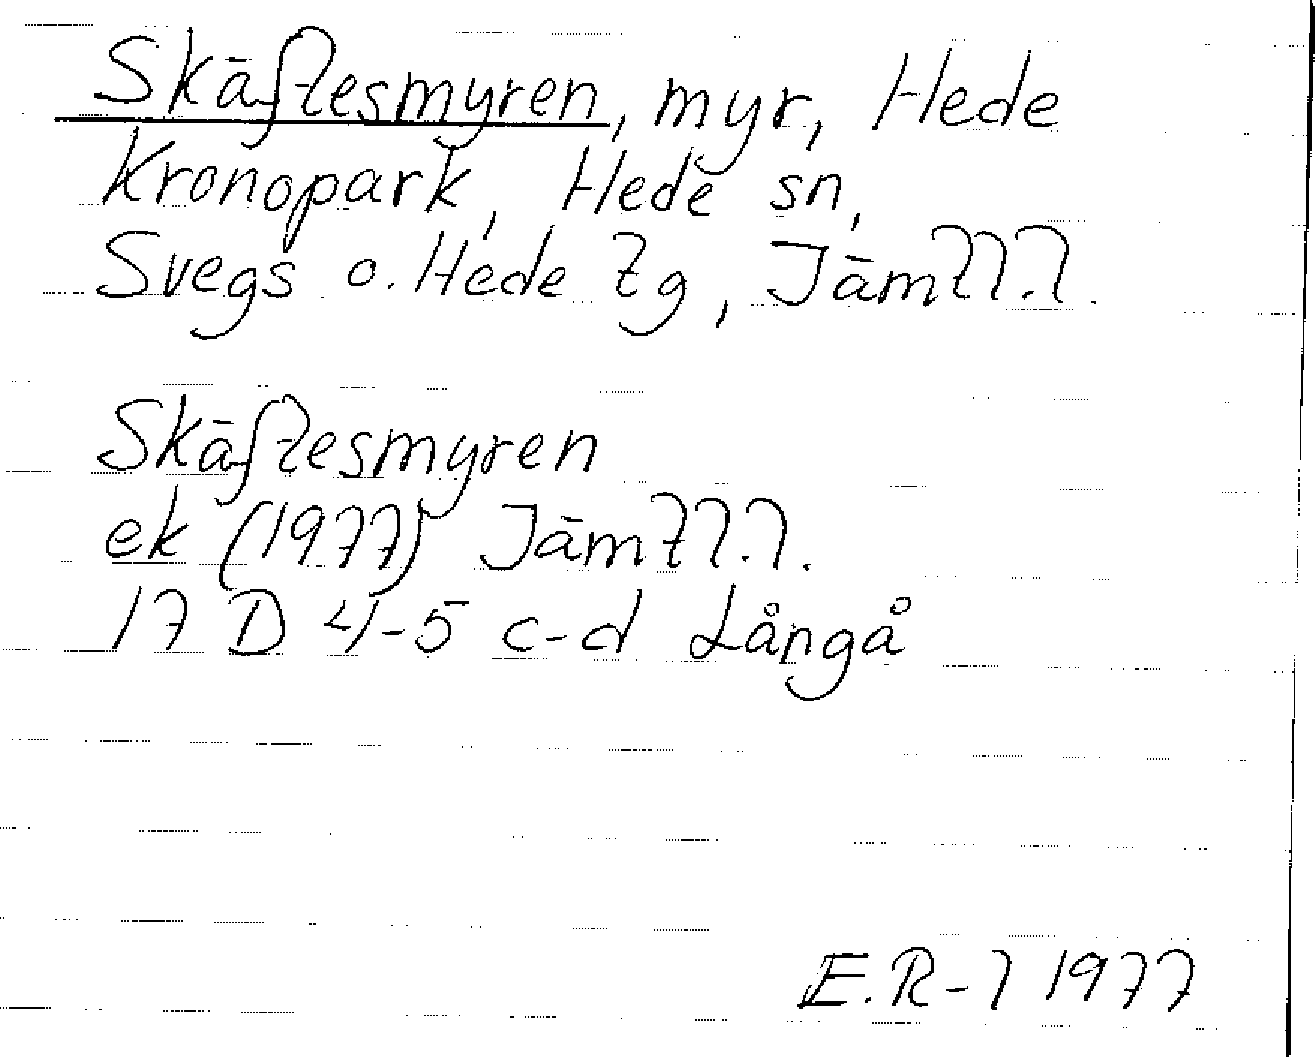 Skäftesmyren, myr, Hede
Kronopark, Hede sn,
Svegs o. Hede tg, Jämtl.l.
Skäftesmyren
ek (1977) Jämtl.l.
17 D 4-5 c-d Långå
E.R-l 1977